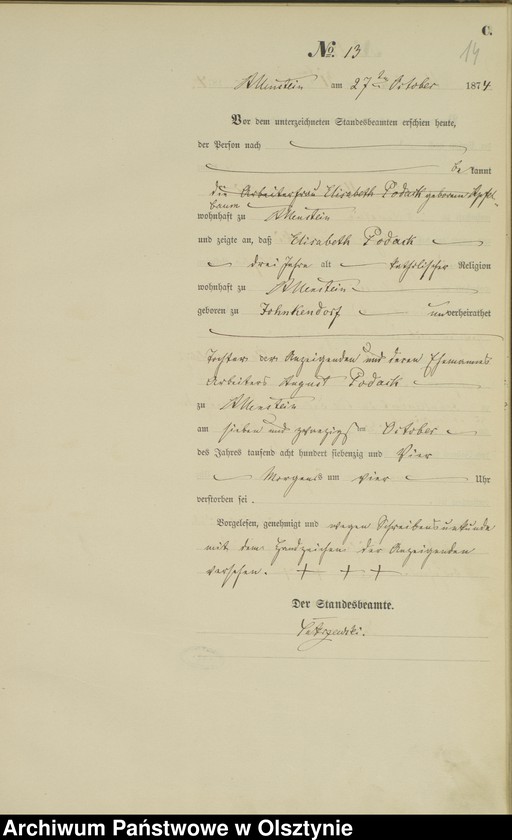 C.
No. 13
14
Allenstein am 27ten October 1874
Vor dem unterzeichneten Standesbeamten erschien heute,
der Person nach
be kannt
die Arbeiterfrau Elisabeth Podack geborene Apfel-
baum
wohnhaft zu Allenstein
und zeigte an, daß Elisabeth Podack
drei Jahre alt katholischer Religion
wohnhaft zu Allenstein
geboren zu Johnkendorf unverheirathet
Tochter der Anzeigenden und deren Ehemannes
Arbeiters August Podack
zu Allenstein
am sieben und zwanzigsten October
des Jahres tausend acht hundert siebenzig und Vier
Morgens um vier Uhr
verstorben sei.
Vorgelesen, genehmigt und wegen Schreibensunkunde
mit dem Handzeichen der Anzeigenden
versehen. + + +
Der Standesbeamte.
Archiwum Państwowe w Olsztynie